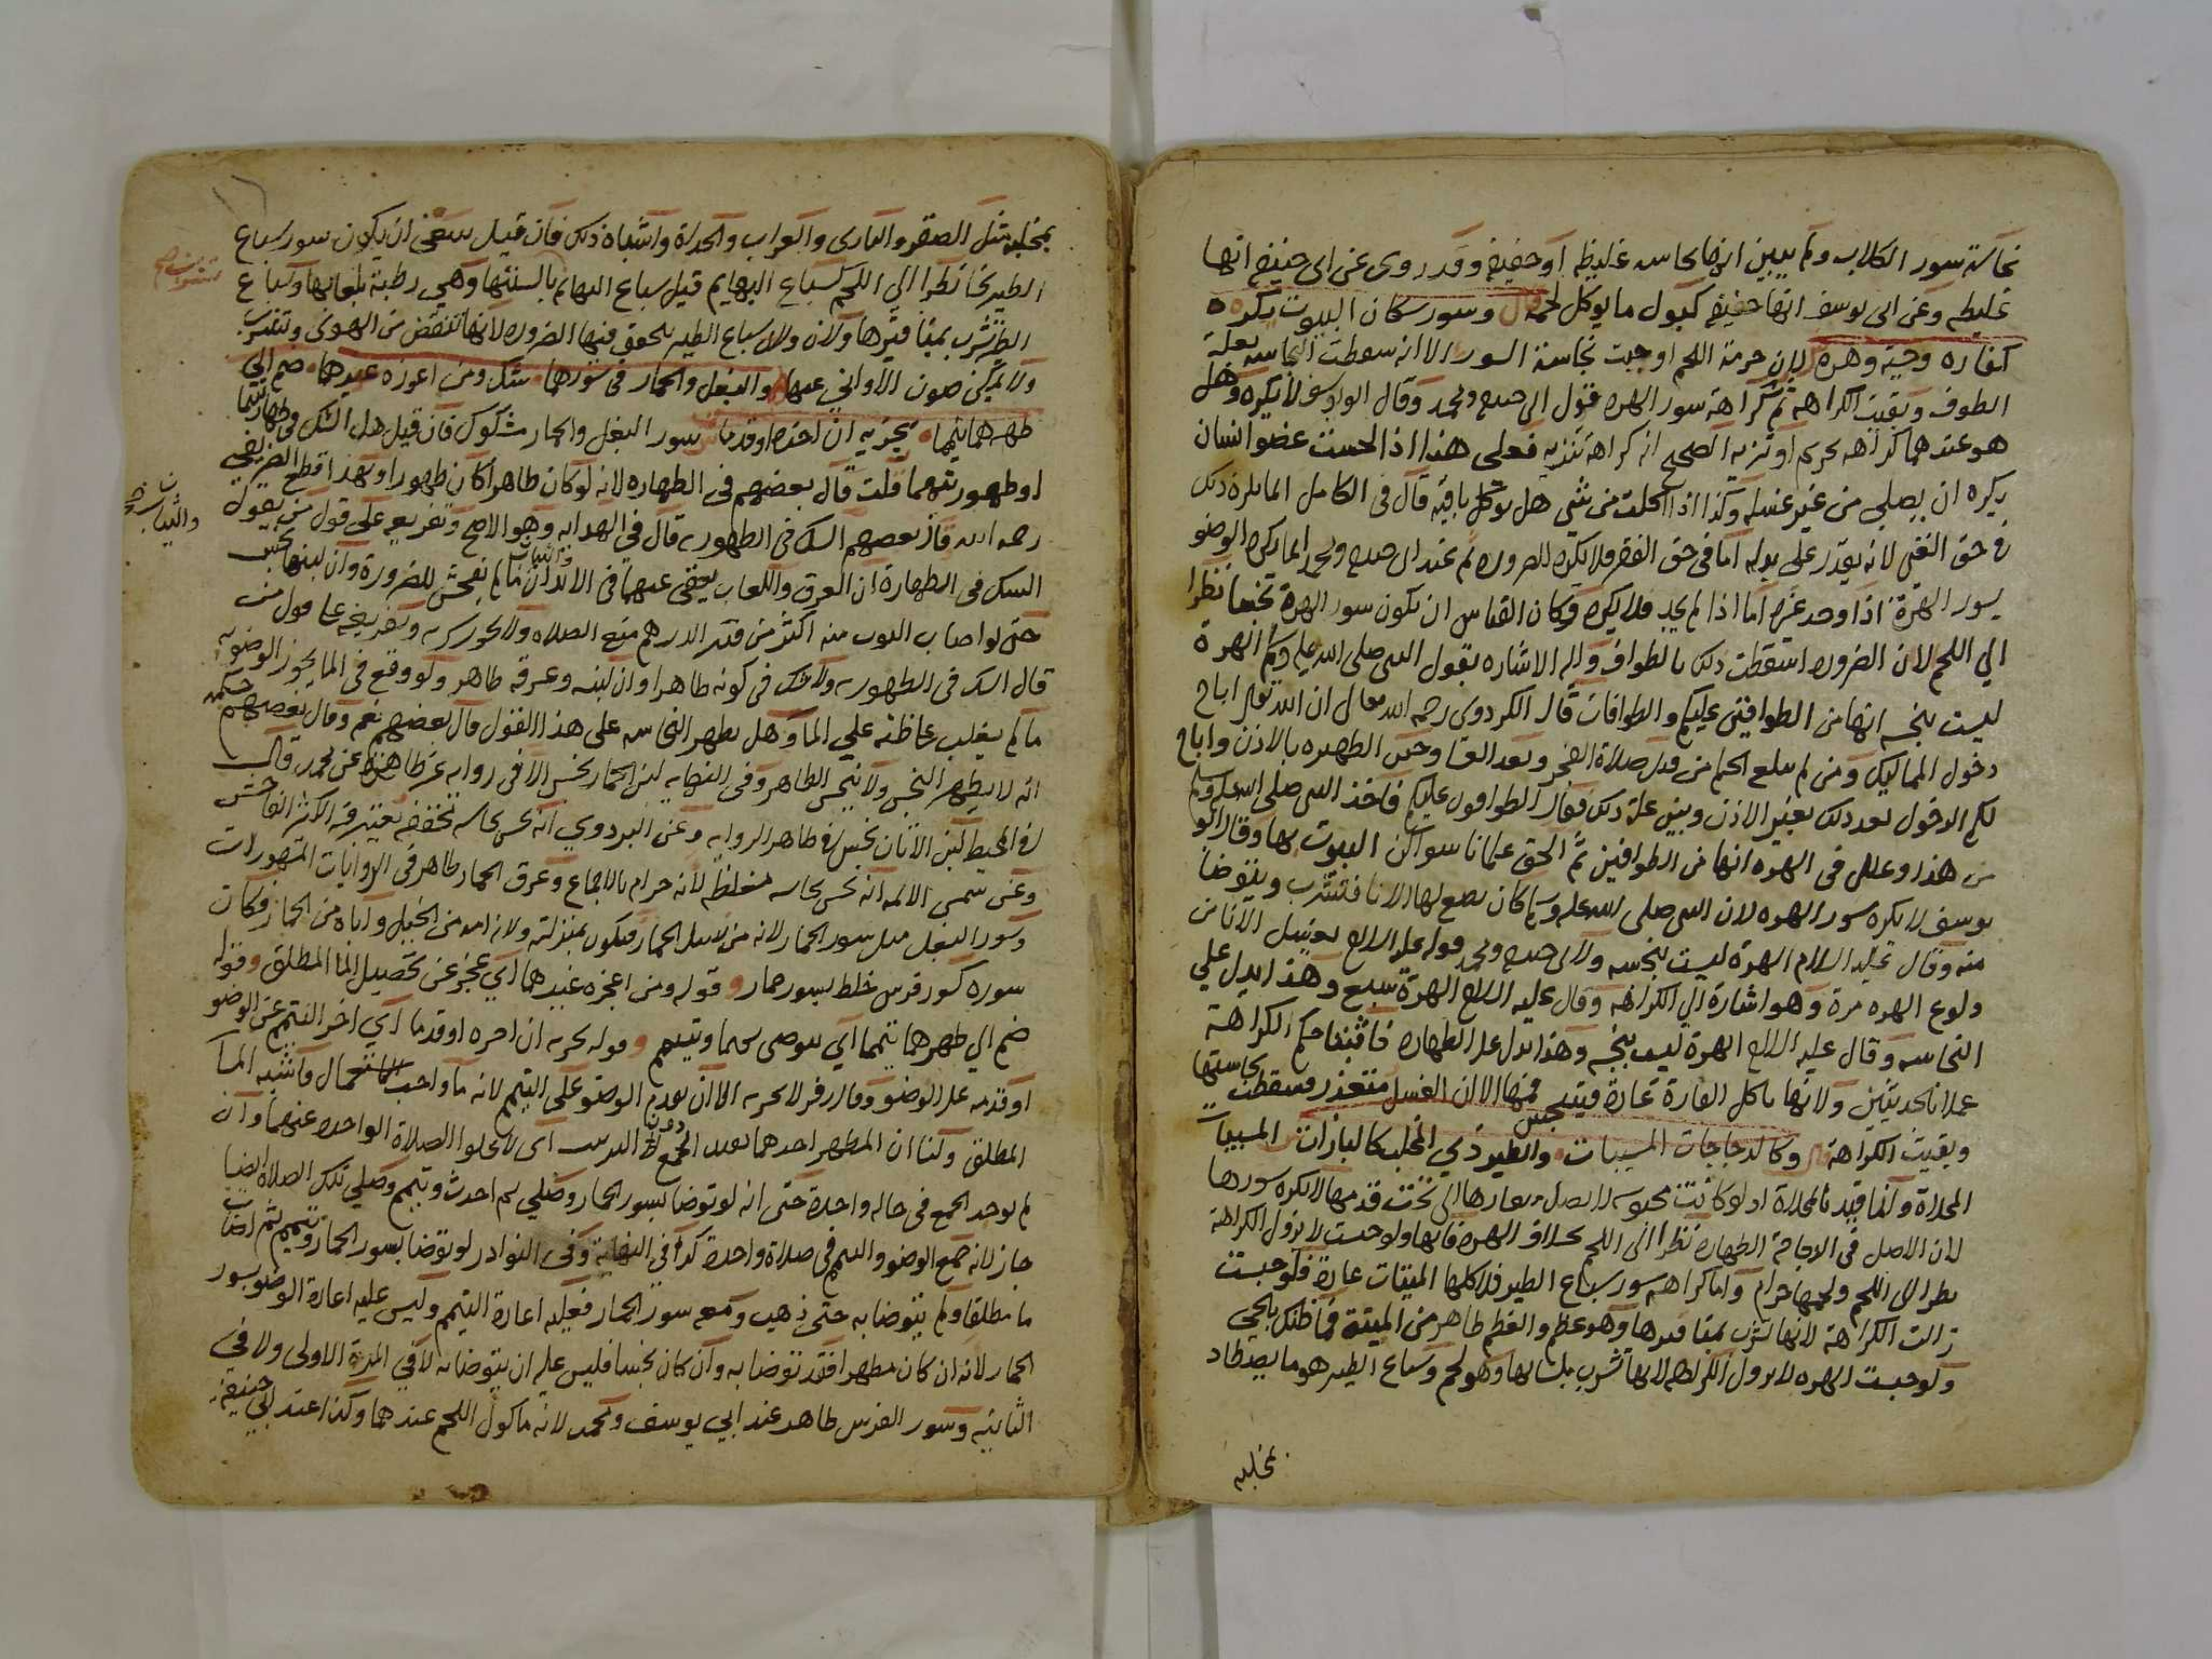 نجاسة سور الكلاب ولم يبين انها نجاسه غليظه او خفيفه وقد روى عن ابى حنيفه انها
غليظه وعن ابى يوسف انها خفيفه كبول ما يوكل لحمه وسور سكان البيوت يكره
كفاره وحية وهرة لان حرمة اللحم اوجبت نجاسة السور الا انه سقطت النجاسه بعلة
الطوف وبقيت الكراهة ثم كراهة سور الهره قول ابى حنيفه ومحمد وقال ابو يوسف لا يكره وهل
هو عندهما كراهه تحريم او تنزيه الصحيح انه كراهة تنزيه فعلى هذا اذا لحست عضو انسان
يكره ان يصلى من غير غسله وكذا اذا اكلت من شى هل يوكل باقيه قال فى الكامل انما يكره ذلك
فى حق الغنى لانه يقدر على بدله اما فى حق الفقير فلا يكره للضروره ثم عند ابى حنيفه ومحمد انما يكره الوضو
بسور الهرة اذا وجد غيره اما اذا لم يجد فلا يكره وكان القياس ان يكون سور الهرة نجسا نظرا
الى اللحم لان الضروره اسقطت ذلك بالطواف واليه الاشاره بقول النبى صلى الله عليه وسلم الهرة
ليست بنجسه انها من الطوافين عليكم والطوافات قال الكردرى رحمه الله تعالى ان الله تعالى اباح
دخول المماليك ومن لم يبلع الحلم من قبل صلاة الفجر وبعد العشا وحين الظهيره بالاذن واباح
لكم الدخول بعد ذلك بغير الاذن وبين علة ذلك فقال طوافون عليكم فاخذ النبى صلى الله عليه وسلم
من هذا وعلل فى الهره انها من الطوافين ثم الحق علمانا سواكن البيوت بها وقال ابو
يوسف لا يكره سور الهره لان النبى صلى الله عليه وسلم كان يصغ لها الانا فتشرب ويتوضا
منه وقال عليه السلام الهرة ليست بنجسه ولابى حنيفه ومحمد قوله عليه السلام يغسل الانا من
ولوغ الهره مرة وهو اشارة الى الكراهه وقال عليه السلام الهرة سبع وهذا يدل على
النجاسه وقال عليه السلام الهرة ليست بنجسه وهذا يدل على الطهاره فاثبتنا حكم الكراهة
عملا بالحديثين ولانها تاكل الفارة عادة فيتنجس فمها الا ان الغسل متعذر فسقطت نجاستها
وبقيت الكراهة وكالدجاجات المسيبات والطير ذى المخلب كالبازات المسيبات
المخلاة وانما قيد بالمخلاة اذ لو كانت محبوسه لا يصل منقارها الى تحت قدمها لا يكره سورها
لان الاصل فى الدجاجة الطهاره نظرا الى اللحم بخلاف الهره فانها ولو حبست لا تزول الكراهة
نظرا الى اللحم ولحمها حرام واما كراهه سور سباع الطير فلاكلها الميتات عادة فلو حبست
زالت الكراهة لانها تشرب بمنقارها وهو عظم والعظم طاهر من الميتة فما ظنك بالحى
ولو حبست الهره لا تزول الكراهه لانها تشرب بلسانها وهو لحم وسباع الطير هو ما يصطاد
بمخلبه
بمخلبه مثل الصقر والبازى والغراب والحداة واشباه ذلك فان قيل ينبغى ان يكون سور سباع
الطير نجسا نظرا الى اللحم كسباع البهايم قيل سباع البهايم بالسنتها وهى رطبة بلعابها وسباع
الطير تشرب بمناقيرها ولان سباع الطير يتحقق فيها الضروره لانها تنقض من الهوى وتشرب
ولا يمكن صون الاوانى عنها والبغل والحمار فى سورهما شك ومن اعوزه غيرهما ضم الى
طهرهما تيمما يجزيه ان اخره او قدما سور البغل والحمار مشكوك فان قيل هل الشك فى طهارتهما
او طهوريتهما قلت قال بعضهم فى الطهاره لانه لو كان طاهرا كان طهورا وبهذا قطع
رحمه الله وقال بعضهم الشك فى الطهوريه قال فى الهدايه وهو الاصح وتفريعه على قول من يقول
الشك فى الطهارة ان العرق واللعاب يعفى عنهما فى الابدان والثياب ما لم يفحش للضرورة وان لبنها نجس
حتى لو اصاب الثوب منه اكثر من قدر الدرهم منع الصلاه ولا يجوز شربه وتفريعه على قول من
قال الشك فى الطهوريه ولا شك فى كونه طاهرا وان لبنه وعرقه طاهر ولو وقع فى الما يجوز الوضو به
ما لم يغلب على الما وهل يطهر النجاسه على هذا القول قال بعضهم نعم وقال بعضهم حكمه
انه لا يطهر النجس ولا ينجس الطاهر وفى النهايه لبن الحمار نجس الا فى روايه غير ظاهره عن محمد وقال
فى المحيط لبن الاتان نجس فى ظاهر الروايه وعن البزدوى انه نجس نجاسه مخففه يعتبر فيه الكثير الفاحش
وعن شمس الايمه انه نجس نجاسه مغلظه لانه حرام بالاجماع وعرق الحمار طاهر فى الروايات المشهورات
وسور البغل مثل سور الحمار لانه من نسل الحمار فيكون بمنزلته ولان امه من الخيل واباه من الحمار فكان
سوره كسور فرس خلط بسور حمار وقوله ومن اعجزه غيرهما اى عجز عن تحصيل الما المطلق وقوله
ضم الى طهرهما تيمما اى يتوضى بهما ويتيمم وقوله يجزيه ان اخره او قدما اى اخر التيمم عن الوضو
او قدمه على الوضو وقال زفر لا يجزيه الا ان يقدم الوضو على التيمم لانه ما واجب الاستعمال فاشبه الما
المطلق ولنا ان المطهر احدهما فيفيد الجمع دون الترتيب اى لا يخلوا الصلاة الواحده عنهما وان
لم يوجد الجمع فى حاله واحدة حتى انه لو توضا بسور الحمار وصلى ثم احدث وتيمم وصلى تلك الصلاة ايضا
جاز لانه جمع الوضو والتيمم فى صلاة واحدة كذا فى النهاية وفى النوادر لو توضا بسور الحمار وتيمم ثم اصاب
ما مطلقا ولم يتوضا به حتى ذهب ومعه سور الحمار فعليه اعادة التيمم وليس عليه اعادة الوضو بسور
الحمار لانه ان كان مطهرا فقد توضا به وان كان نجسا فليس عليه ان يتوضا به لا فى المرة الاولى ولا فى
الثانيه وسور الفرس طاهر عند ابى يوسف ومحمد لانه ماكول اللحم عندهما وكذا عند ابى حنيفة